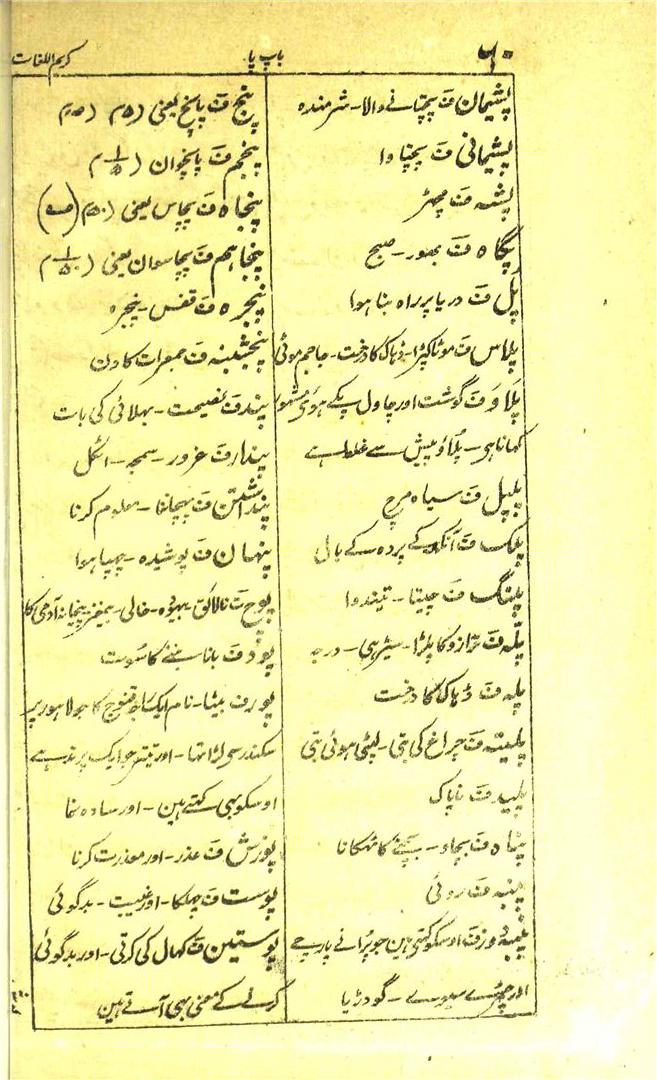 ۶۰
باب پا
کریم اللغات
پشیمان ف پچتانے والا۔ شرمندہ
پشیمانی ف پچتاوا
پشہ ف مچھر
پگاہ ف بھور۔ صبح
پل ف دریا پر راہ بنا ہوا
پلاس ف موٹا کپڑا۔ ڈہاک کا درخت۔ جاجم موٹی
پلاو ف گوشت اور چاول پکے ہوئی مشہور
کہانا ہی۔ پلاؤ پیش سے غلط ہے
پلپل ف سیاہ مرچ
پلک ف آنکھ کے پردہ کے بال
پلنگ ف چیتا۔ تیندوا
پلّہ ف ترازو کا پلڑا۔ سیڑہی۔ درجہ
پلہ ف ڈہاک کا درخت
پلیتہ ف چراغ کی بتی۔ لپٹی ہوئی بتی
پلید ف ناپاک
پناہ ف بچاو۔ بچنے کا ٹہکانا
پنبہ ف روئی
پنبہ دوز ف اوسکو کہتی ہین جو پرانے پارچے
اور چمڑے سیوے۔ گودڑیا
پنج ف پانچ یعنی (۵)
پنجم ف پانچوان (۱/۵)
پنجاہ ف پچاس یعنی (۵۰)
پنجاہم ف پچاسوان یعنی (۱/۵۰)
پنجرہ ف قفس۔ پنجرہ
پنجشنبہ ف جمعرات کا دن
پند ف نصیحت۔ بہلائی کی بات
پندار ف غرور۔ سمجہ۔ اٹکل
پنداشتن ف پہچاننا۔ معلوم کرنا
پنہان ف پوشیدہ۔ چہپا ہوا
پوچ ف نالائق۔ بیہودہ۔ خالی۔ بیمغز۔
پود ف بانا بننے کا سوت
پور ف بیٹا۔ نام ایک راجہ قنوج کا جو لاہور پر
سکندر سی لڑا تہا۔ اور تیتر جو ایک پرند ہے
اوسکو بہی کہتے ہین۔ اور سادہ نما
پوزش ف عذر۔ اور معذرت کرنا
پوست ف چہلکا۔ اور غیبت۔ بدگوئی
پوستین ف کہال کی کرتی۔ اور بدگوئی
کرنے کے معنی بہی آتے ہین